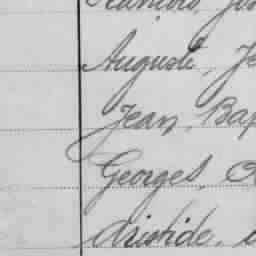 Auguste, Je
Jean, Bap
Georges,
Aristide,